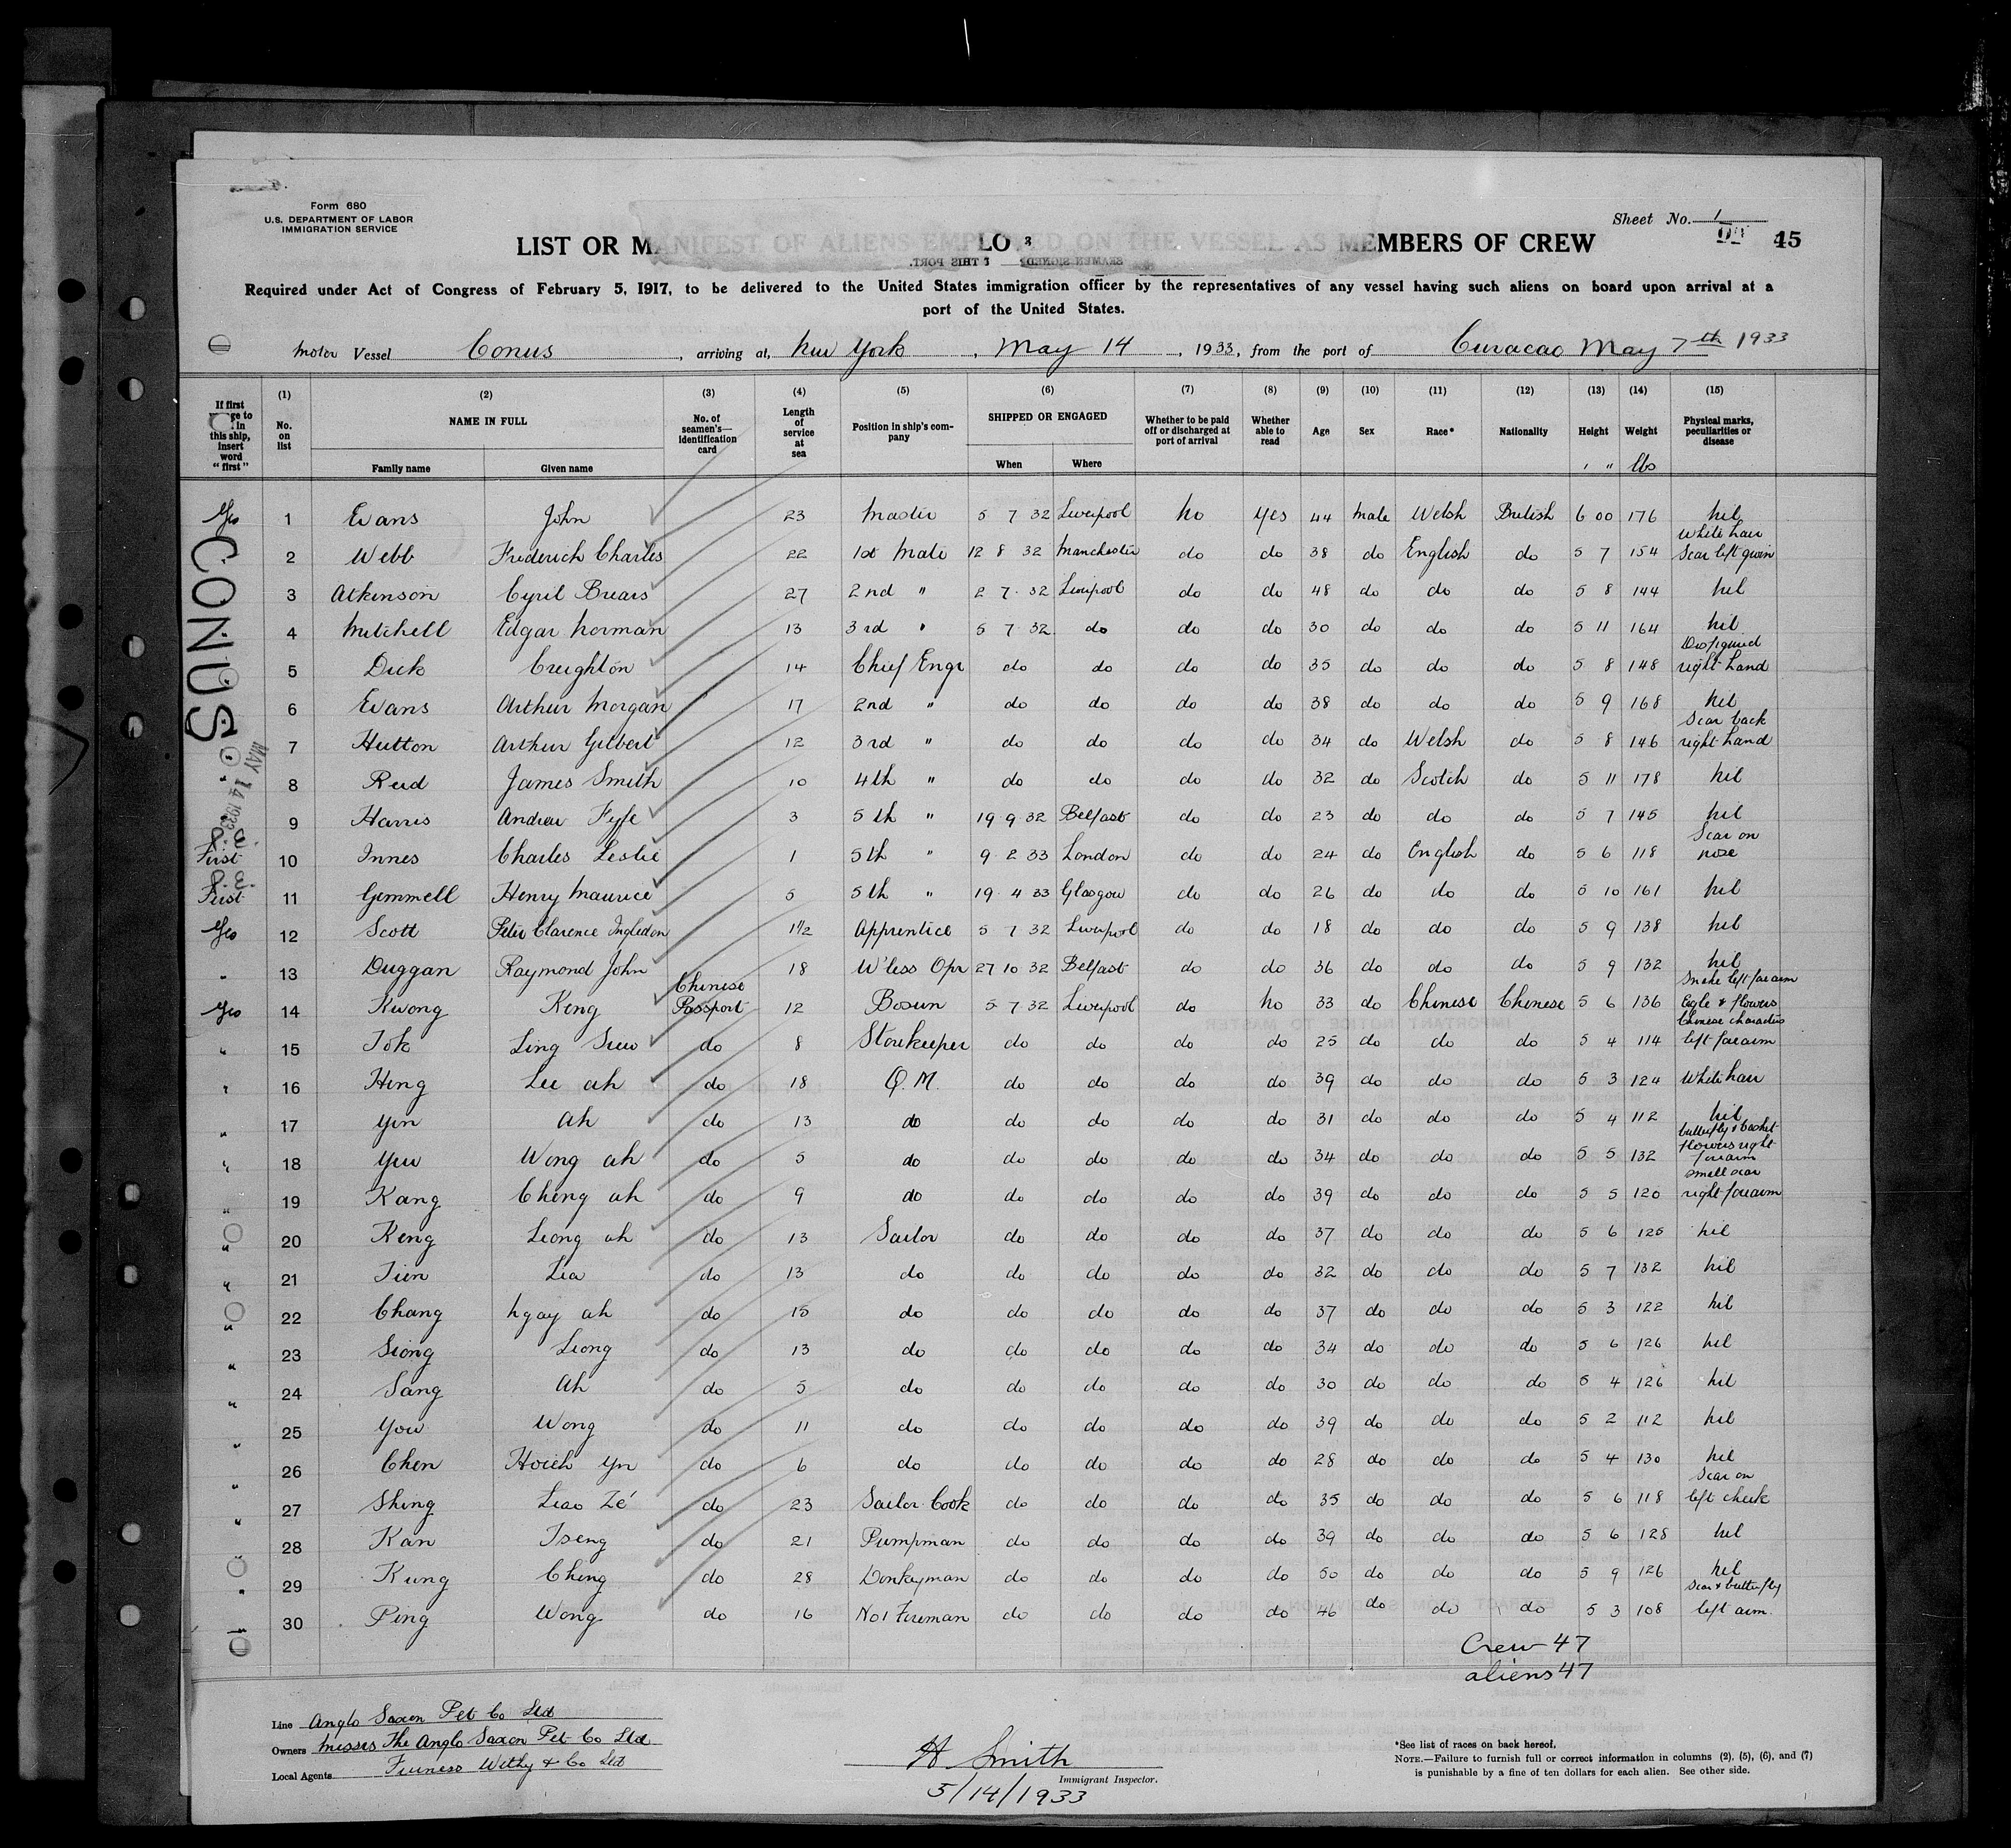 Form 680
U.S. DEPARTMENT OF LABOR
IMMIGRATION SERVICE
Sheet No. 1
45
LIST OR MANIFEST OF ALIENS EMPLOYED ON THE VESSEL AS MEMBERS OF CREW
Required under Act of Congress of February 5, 1917, to be delivered to the United States immigration officer by the representatives of any vessel having such aliens on board upon arrival at a
port of the United States.
Motor Vessel Conus, arriving at, New York, May 14, 1933, from the port of Curacao May 7th 1933
If first voyage to in this ship, insert word "first" (1) No. on list (2) NAME IN FULL Family name Given name (3) No. of seamen's identification card (4) Length of service at sea (5) Position in ship's company (6) SHIPPED OR ENGAGED When Where (7) Whether to be paid off or discharged at port of arrival (8) Whether able to read (9) Age (10) Sex (11) Race* (12) Nationality (13) Height ' " (14) Weight lbs (15) Physical marks, peculiarities or disease
CONUS
MAY 14 1933
Yes 1 Evans John 23 Master 5 7 32 Liverpool No Yes 44 Male Welsh British 6 00 176 Nil
2 Webb Frederick Charles 22 1st Mate 12 8 32 Manchester do do 38 do English do 5 7 154 White hair Scar left groin
3 Atkinson Cyril Briars 27 2nd " 2 7 32 Liverpool do do 48 do do do 5 8 144 Nil
4 Mitchell Edgar Norman 13 3rd " 5 7 32 do do do 30 do do do 5 11 164 Nil
5 Dick Creighton 14 Chief Engr do do do do 35 do do do 5 8 148 Disfigured right hand
6 Evans Arthur Morgan 17 2nd " do do do do 38 do do do 5 9 168 Nil
7 Hutton Arthur Gilbert 12 3rd " do do do do 34 do Welsh do 5 8 146 Scar back right hand
8 Reid James Smith 10 4th " do do do do 32 do Scotch do 5 11 178 Nil
9 Harris Andrew Fyfe 3 5th " 19 9 32 Belfast do do 23 do do do 5 7 145 Nil
First 10 Innes Charles Leslie 1 5th " 9 2 33 London do do 24 do English do 5 6 118 Scar on nose
First 11 Gemmell Henry Maurice 5 5th " 19 4 33 Glasgow do do 26 do do do 5 10 161 Nil
Yes 12 Scott Peter Clarence Ingledon 1½ Apprentice 5 7 32 Liverpool do do 18 do do do 5 9 138 Nil
" 13 Duggan Raymond John 18 W'less Opr 27 10 32 Belfast do do 36 do do do 5 9 132 Nil
Yes 14 Kwong Keng Chinese Passport 12 Bosun 5 7 32 Liverpool do No 33 do Chinese Chinese 5 6 136 Snake left forearm Eagle & flowers
" 15 Tok Ling Suw do 8 Storekeeper do do do do 25 do do do 5 4 114 Chinese characters left forearm
" 16 Heng Lee ah do 18 Q.M. do do do do 39 do do do 5 3 124 White hair
" 17 Yin Ah do 13 do do do do do 31 do do do 5 4 112 Nil
" 18 Yuu Wong ah do 5 do do do do do 34 do do do 5 5 132 butterfly & basket flowers right forearm
" 19 Kang Cheng ah do 9 do do do do do 39 do do do 5 5 120 small scar right forearm
" 20 Keng Leong ah do 13 Sailor do do do do 37 do do do 5 6 125 Nil
" 21 Tien Lia do 13 do do do do do 32 do do do 5 7 132 Nil
" 22 Chang Ngay ah do 15 do do do do do 37 do do do 5 3 122 Nil
" 23 Siong Liong do 13 do do do do do 34 do do do 5 6 126 Nil
" 24 Sang Ah do 5 do do do do do 30 do do do 5 4 126 Nil
" 25 You Wong do 11 do do do do do 39 do do do 5 2 112 Nil
" 26 Chen Hsieh Yn do 6 do do do do do 28 do do do 5 4 130 Nil
" 27 Shing Liao Zé do 23 Sailor Cook do do do do 35 do do do 5 6 118 Scar on left cheek
" 28 Kan Tseng do 21 Pumpman do do do do 39 do do do 5 6 128 Nil
" 29 Kung Cheng do 28 Donkeyman do do do do 50 do do do 5 9 126 Nil
" 30 Ping Wong do 16 No 1 Fireman do do do do 46 do do do 5 3 108 Scar & butterfly left arm.
Crew 47
aliens 47
Line Anglo Saxon Pet Co Ltd
Owners Messrs The Anglo Saxon Pet Co Ltd
Local Agents Furness Withy & Co Ltd
H Smith
Immigrant Inspector.
5/14/1933
*See list of races on back hereof.
NOTE.—Failure to furnish full or correct information in columns (2), (5), (6), and (7)
is punishable by a fine of ten dollars for each alien. See other side.